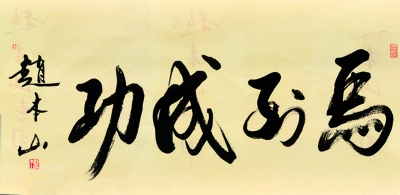 馬到成功
趙本山